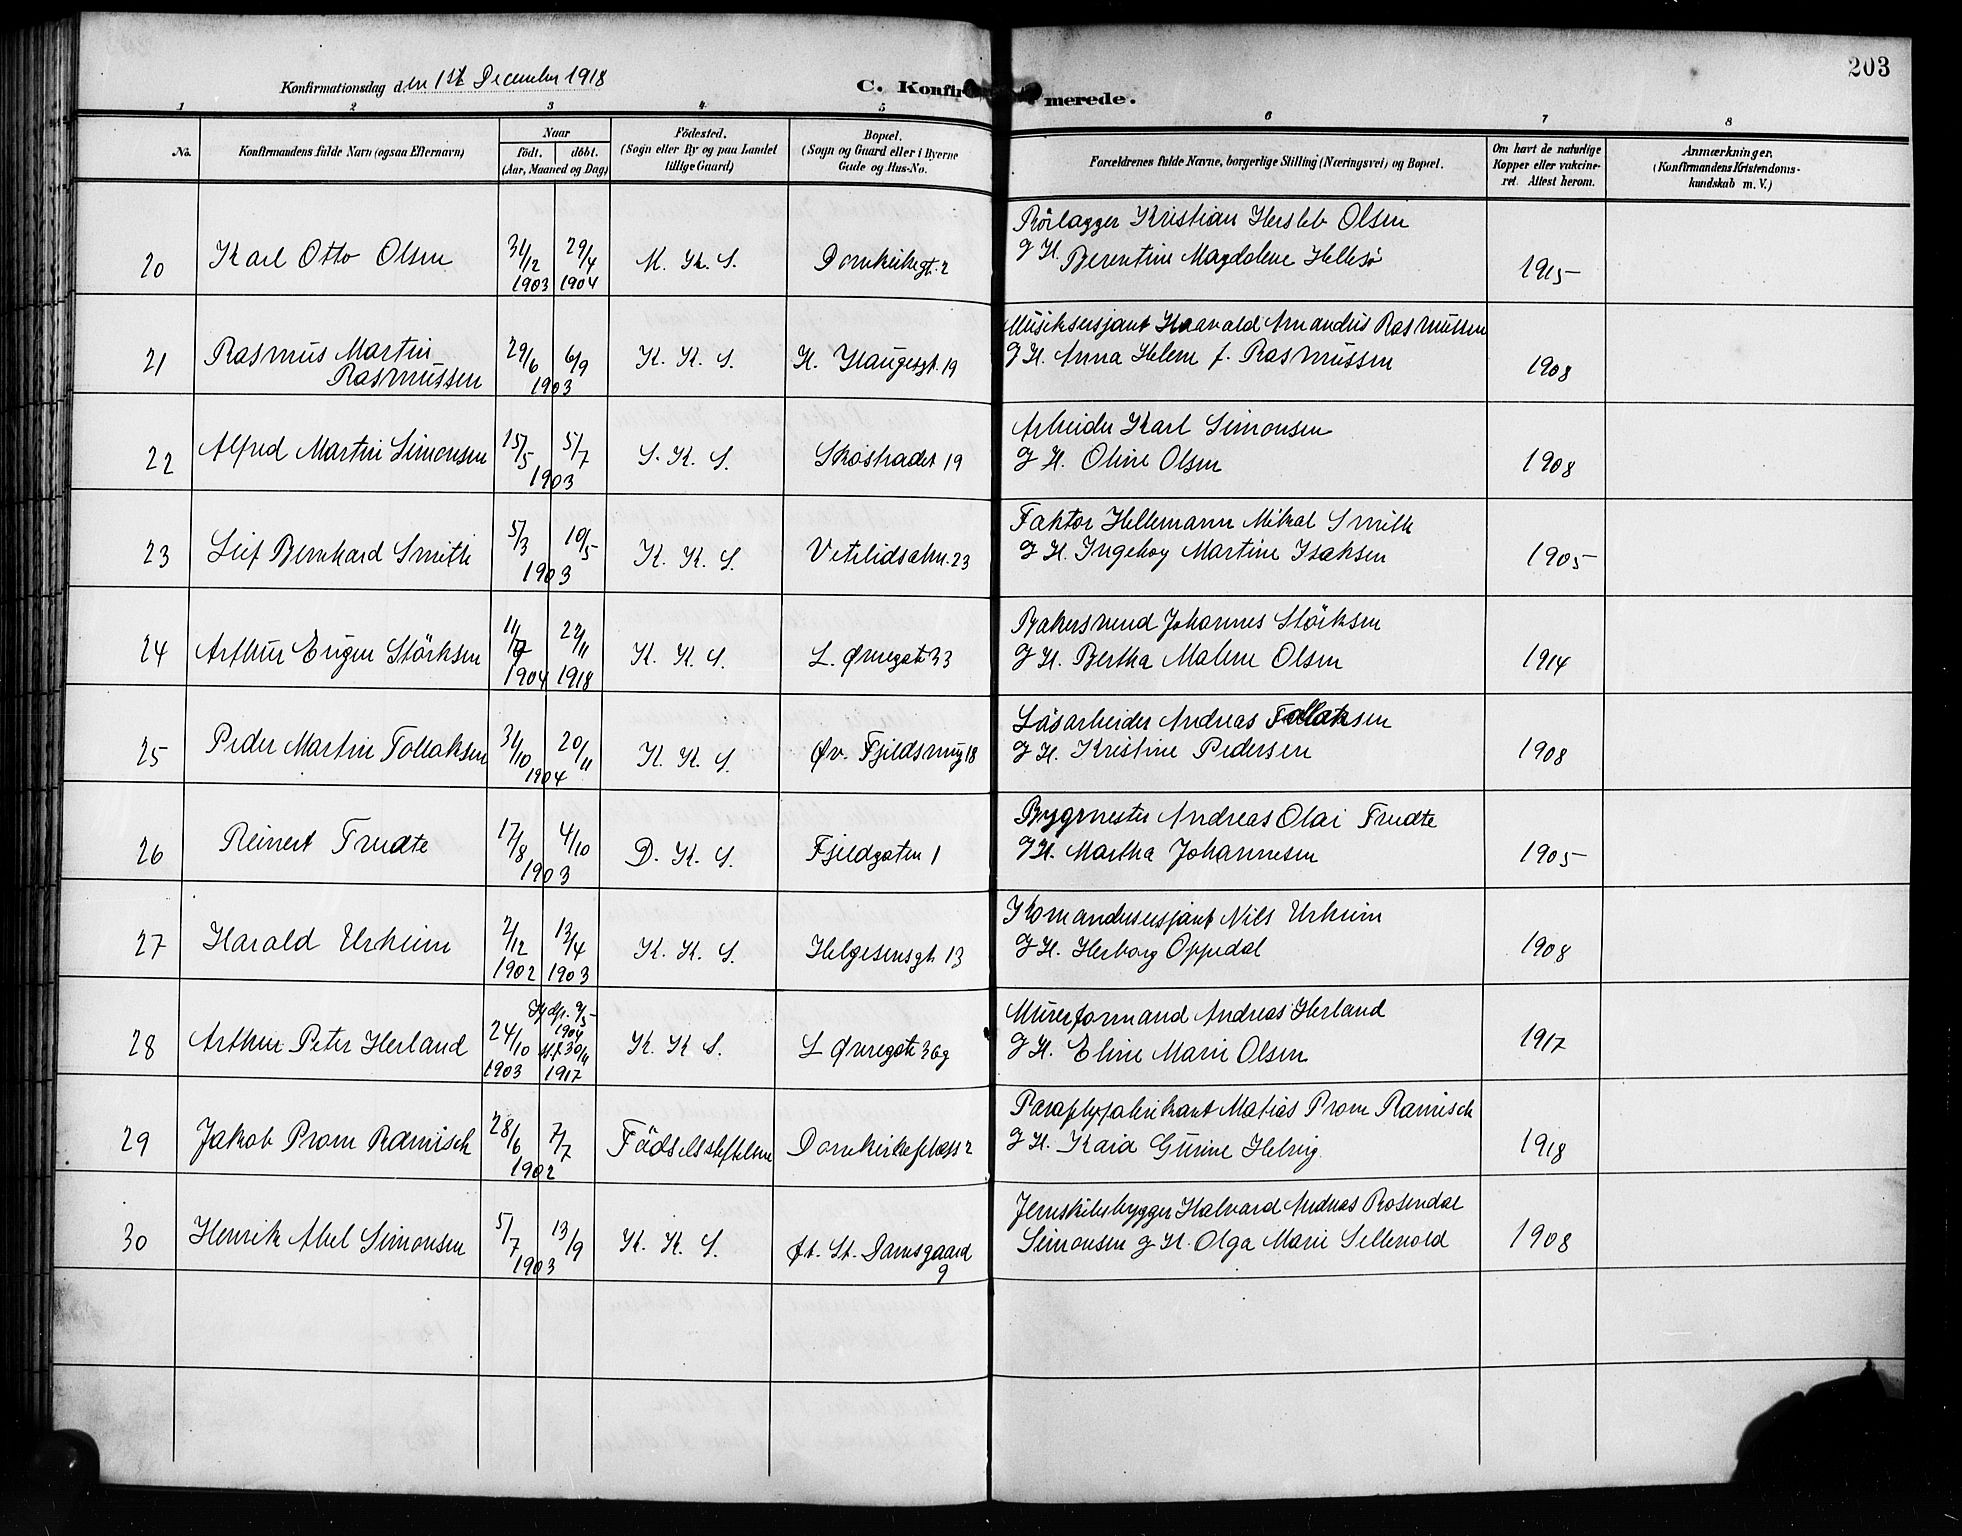 203
Konfirmationsdag den 1st December 1918
C. Konfirmerede.
1 2 3 4 5 6 7 8
No.
Konfirmandens fulde Navn (ogsaa Efternavn)
Naar
födt. döbt.
(Aar, Maaned og Dag)
Födested.
(Sogn eller By og paa Landet
tillige Gaard)
Bopæl.
(Sogn og Gaard eller i Byerne
Gade og Hus-No.
Forældrenes fulde Navne, borgerlige Stilling (Næringsvei) og Bopæl.
Om havt de naturlige
Kopper eller vakcine-
ret. Attest herom.
Anmærkninger.
(Konfirmandens Kristendoms-
kundskab m. V.)
20 Karl Otto Olsen 31/12 1903 29/4 1904 M. K. S. Domkirkegt. 2
Rörlagger Kristian Hersleb Olsen
g H. Berentine Magdalene Hellesö 1915
21 Rasmus Martin
Rasmussen 29/6 6/9 1903 K. K. S. H. Haugesgt. 19
Musiksersjant Haavald Amandus Rasmussen
g H. Anna Helene f. Rasmussen 1908
22 Alfred Martin Simonsen 15/5 5/7 1903 S. K. S. Skostradet 19
Arbeider Karl Simonsen
g H. Oline Olsen 1908
23 Leif Bernhard Smith 5/3 10/5 1903 K. K. S. Vetrlidsalm. 23
Faktor Hellemann Mikal Smith
g H. Ingeborg Martine Isaksen 1905
24 Arthur Eugen Störksen 11/7 1904 22/11 1918 K. K. S. L. Øvregate 33
Bakersvend Johannes Störksen
g H. Bertha Malene Olsen 1914
25 Peder Martin Tollaksen 31/10 20/11 1904 K. K. S. Øv. Fjeldsmug 18
Låsarbeider Andreas Tollaksen
g H. Kristine Pedersen 1908
26 Reinert Trudte 17/8 4/10 1903 D. K. S. Fjeldgaten 1
Bygmester Andreas Olai Trudte
g H. Martha Johannesen 1905
27 Harald Urheim 2/12 1902 13/4 1903 K. K. S. Helgesensgt. 13
Komandersersjant Nils Urheim
g H. Herborg Oppedal 1908
28 Arthur Peter Herland 24/10 1903 Hjdp. 9/5 1904 st.f. 30/11 1917 K. K. S. L Øvregate 36g
Murerformand Andreas Herland
g H. Eline Marie Olsen 1917
29 Jakob Prom Ramisch 28/6 7/7 1902 Födselsstiftelsen Domkirkeplass 2
Paraplyfabrikant Matias Prom Ramisch
g H. Kaia Gurine Helvig. 1918
30 Henrik Abel Simonsen 5/7 13/9 1903 K. K. S. Øt. St. Damsgaard
9
Jernskibsbygger Halvard Andreas Rosendal
Simonsen g H. Olga Marie Sellevold 1908